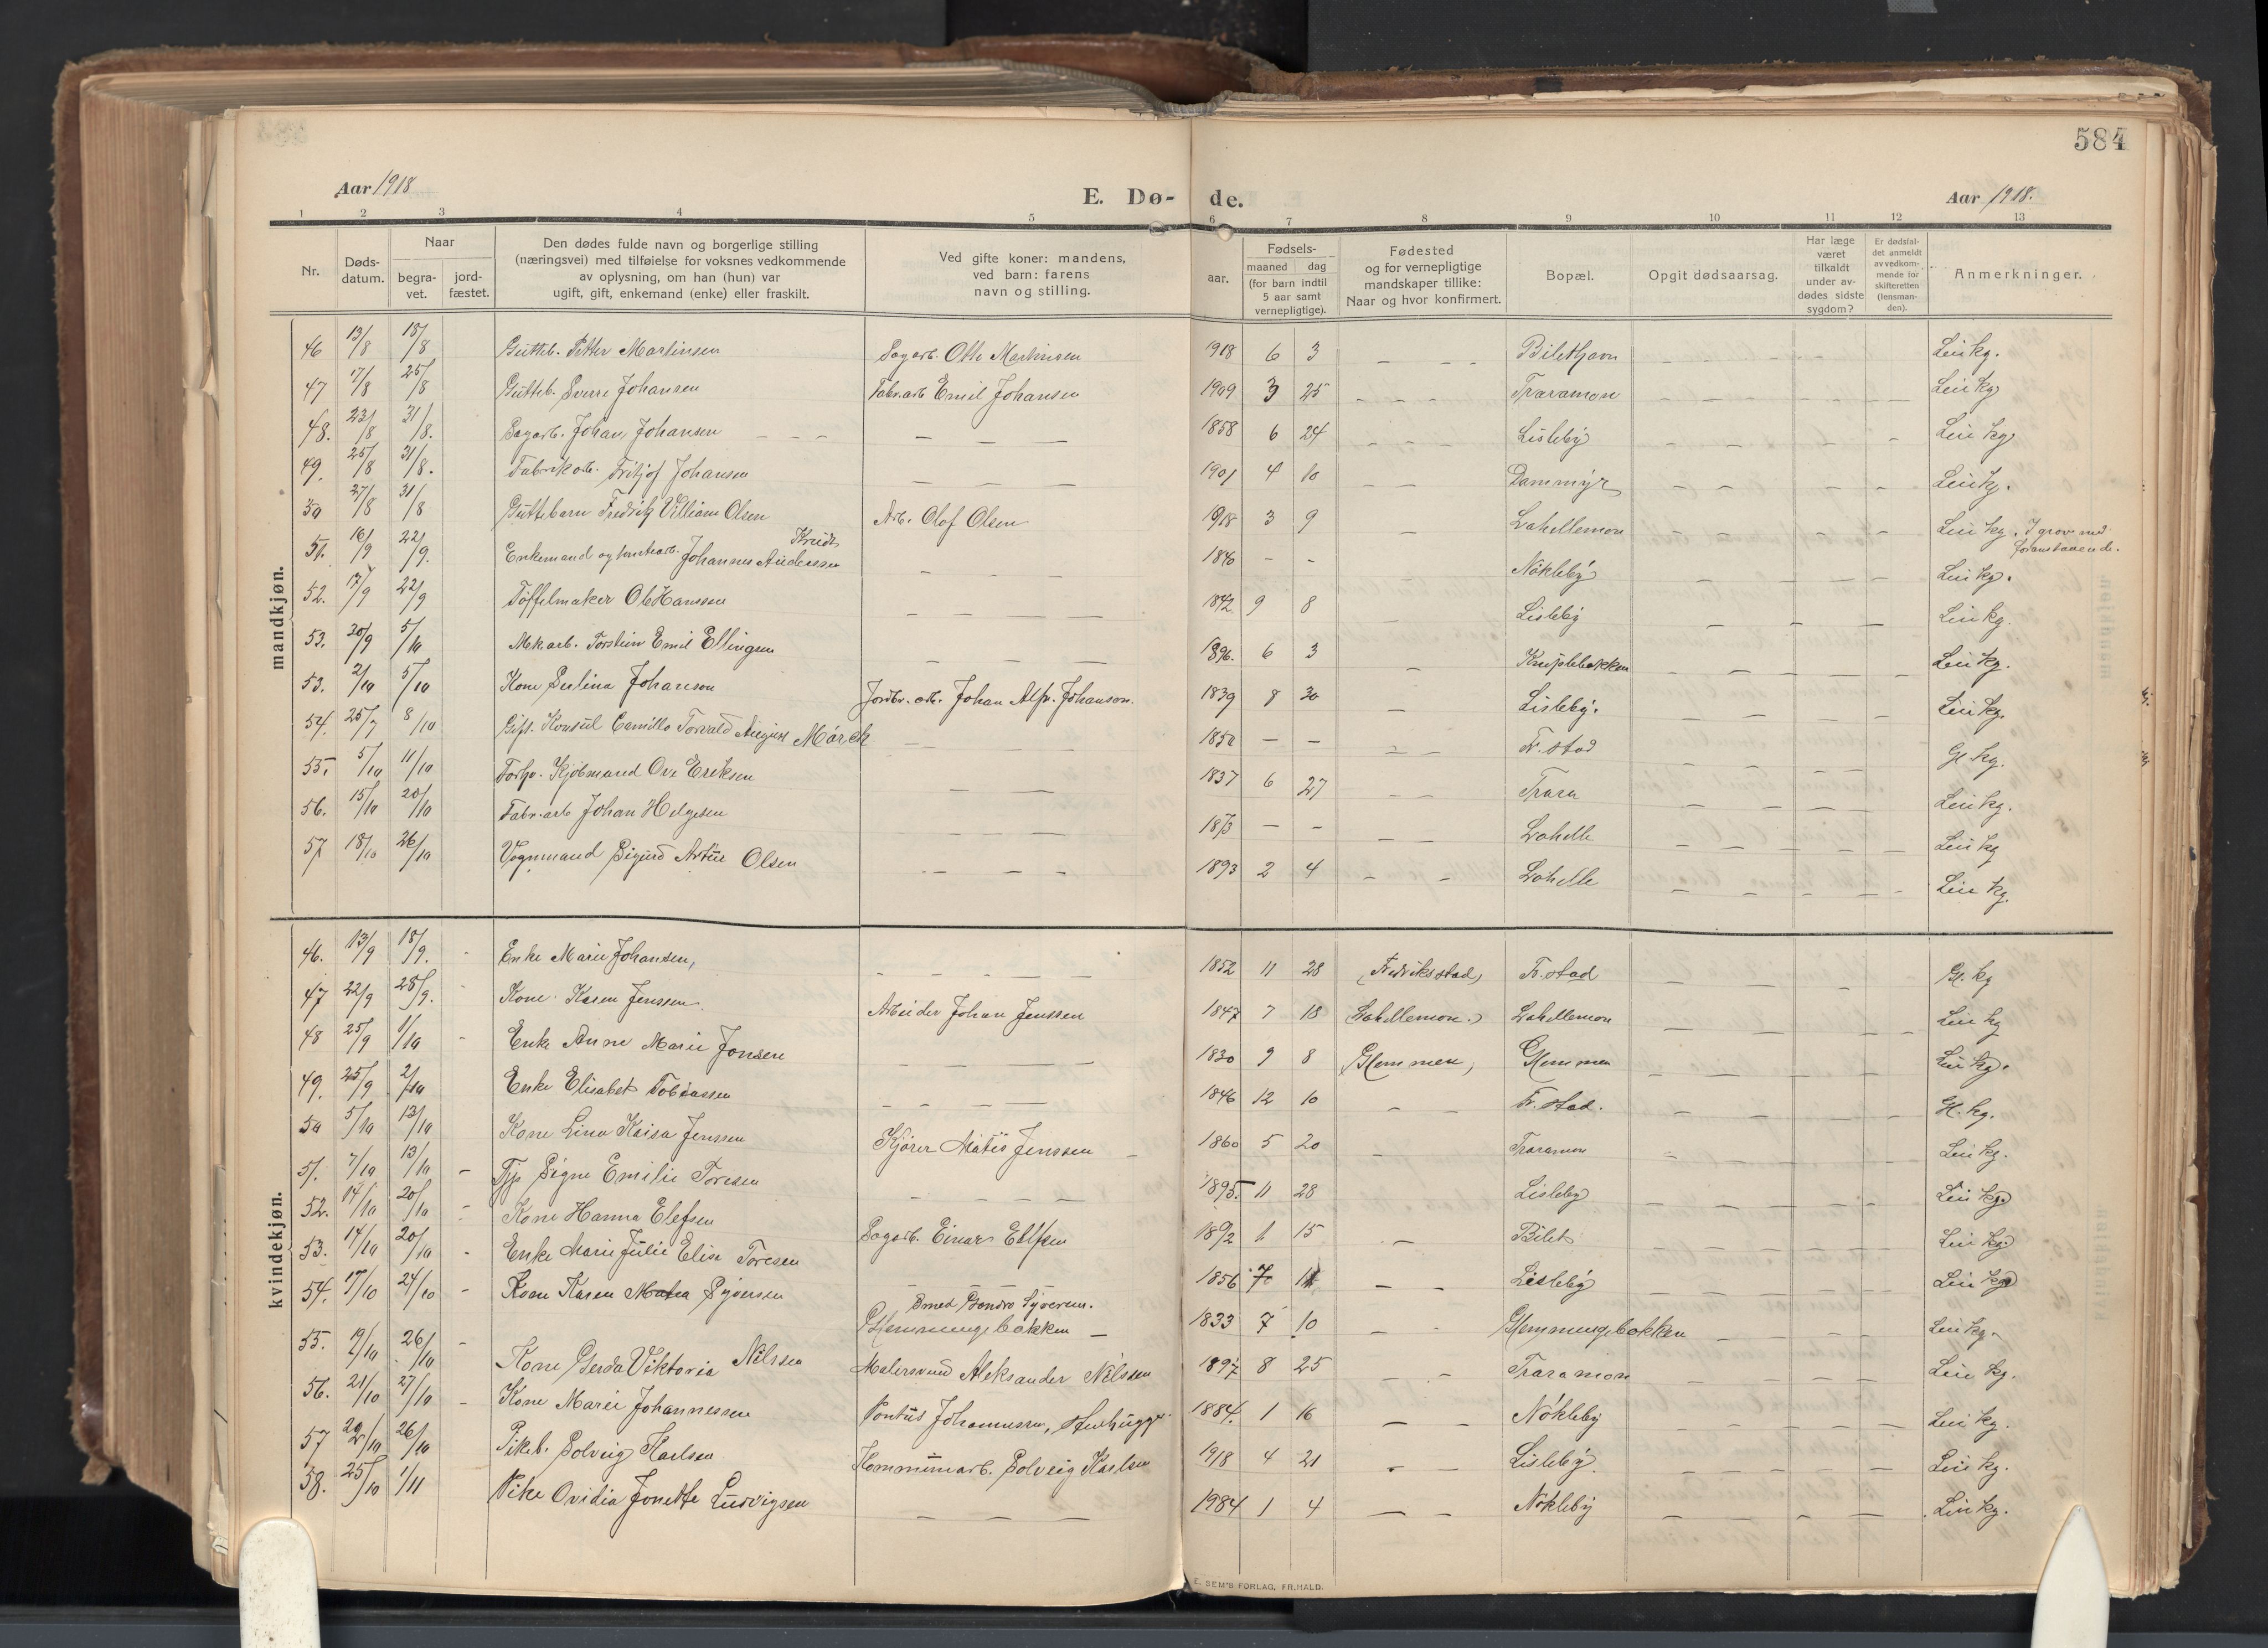 584
Aar 1918
E. Dø- de.
Aar 1918.
1 2 3 4 5 6 7 8 9 10 11 12 13
Nr.
Døds-
datum.
Naar
begra-
vet.
jord-
fæstet.
Den dødes fulde navn og borgerlige stilling
(næringsvei) med tilføielse for voksnes vedkommende
av oplysning, om han (hun) var
ugift, gift, enkemand (enke) eller fraskilt.
Ved gifte koner: mandens,
ved barn: farens
navn og stilling.
aar.
Fødsels-
maaned dag
(for barn indtil
5 aar samt
vernepligtige).
Fødested
og for vernepligtige
mandskaper tillike:
Naar og hvor konfirmert.
Bopæl.
Opgit dødsaarsag.
Har læge
været
tilkaldt
under av-
dødes sidste
sygdom?
Er dødsfal-
det anmeldt
av vedkom-
mende for
skifteretten
(lensman-
den).
Anmerkninger.
mandkjøn.
46 13/8 18/8 Gutteb. Petter Martinsen Sagarb. Otto Martinsen 1918 6 3 - - - Bilethavn Leie kg.
47 17/8 25/8 Gutteb. Sverre Johansen Fabr.arb Emil Johansen 1909 3 25 - - - Traramon Leie kg
48. 23/8 31/8. Sagarb. Johan Johansen - - - 1858 6 24 - - - Lisleby Leie kg.
49. 25/8 31/8. Fabrikarb. Fritjof Johansen - - - 1901 4 10 - - - Dammyr Leie kg.
50 27/8 31/8 Guttebarn Fredrik Villiam Olsen Arb. Olof Olsen 1918 3 9 - - Lahellemon Leie kg. I grav med
foranstaaende.
51. 16/9 22/9. Enkemand og Johannes Anderssen - - - 1840 - - - Nøkleby Leie kg.
52. 17/9 22/9 Tøffelmaker Ole Hanssen - - - 1842 9 8 - Lisleby Leie kg.
53. 30/9 5/10 Mek.arb. Torstein Emil Ellingsen - - - 1896. 6 3 - Leie kg.
53. 2/10 5/10 Kone Johanson Jordbr. arb. Johan Alfr. Johanson. 1839 8 30 - Lisleby. Leie kg.
54. 25/7 8/10 Gift. Konsul Camillo Torvald August Mørch - - - 1850 - - - - Fr. stad Gl. kg.
55. 5/10 11/10 Forhv. Kjøbmand Ove Eriksen - - 1837 6 27 - - Trara Leie kg.
56. 15/10 20/10 Fabr.arb Johan Helgesen - - - 1873 - - - - Lahelle Leie kg
57 18/10 26/10 Vognmand Sigurd Artur Olsen - - - 1893 2 4 - - Lahelle Leie kg.
kvindekjøn.
46. 13/9 18/9. - Enke Marie Johansen, - - - - 1852 11 28 (Fredriksstad) Fr. stad Gl. kg
47 22/9 25/9. - Kone Karen Jenssen Arbeider Johan Jenssen 1847 7 18 (Lahellemon.) Lahellemon Leie kg
48 25/9 1/10 - Enke Anne Marie Jonsen - - - - 1830 9 8 Glemmen, Glemmen Leie kg.
49. 25/9 2/10 Enke Elisabet Tobiassen - - - 1846 12 10 - - Fr. stad. Gl. kg.
50 5/10 13/10 Kone Lina Kaisa Jenssen Kjører Matis Jenssen - 1860 5 20 - Traramon Leie kg.
51. 7/10 13/10 - Tjp Signe Emilie Toresen - - - - 1895. 11 28 Lisleby Leie kg.
52. 14/10 20/10 - Kone Hanna Elefsen Sagarb. Einar Ellfsen 1892 1 15 - - Bilet Leie kg.
53. 14/10 20/10 - Enke Marie Julie Elise Toresen - - - - 1856 7 - - Lisleby Leie kg.
54. 17/10 24/10 - Kone Karen Syversen Smed Syversen.
Glemmengebakken - 1833 7 10 - - Glemmengebakken Leie kg.
55. 19/10 26/10 - Kone Gerda Viktoria Nilssen Malersvend Aleksander Nilssen 1897 8 25 - - Traramon Leie kg.
56. 21/10 27/10 - Kone Marie Johannessen Pontus Johannessen, stenhugger 1884. 1 16 - - Nøkleby Leie kg.
57 22/10 26/10 Pikeb. Solveig Karlsen Kommunearb. Solveig Karlsen 1918 4 21 - - Lisleby. Leie kg.
58. 25/10 1/11 Pike Ovidia Jonette Ludvigsen - - - 1984 1 4 - - Nøkleby Leie kg.
E. SEM'S FORLAG, FR.HALD.